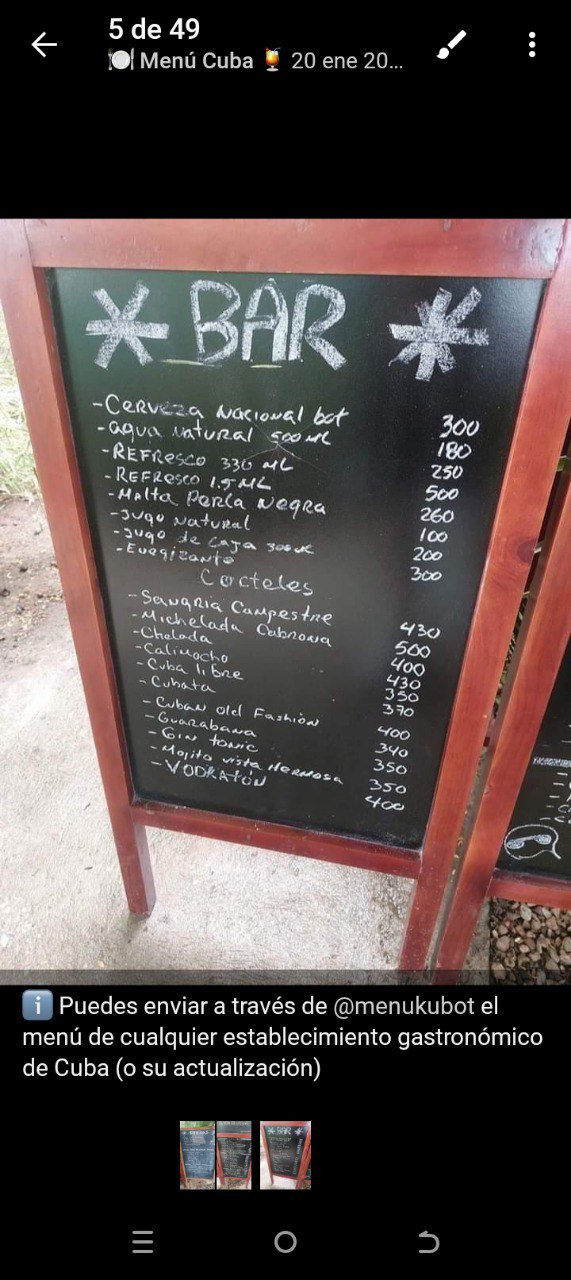 5 de 49
🍽️ Menú Cuba 🍹 20 ene 20...
* BAR *
-Cerveza Nacional bot 300
-agua natural 500 ML 180
-REFRESCO 330 ML 250
-REFRESCO 1.5 ML 500
-Malta Perla Negra 260
-Jugo Natural 100
-Jugo de Caja 300 ML 200
-Energizante 300
Cocteles
-Sangria Campestre 430
-Michelada Cabrona 500
-Chelada 400
-Calimocho 430
-Cuba libre 350
-Cubata 370
-Cuban old Fashion 400
-Guarabana 340
-Gin tonic 350
-Mojito vista Hermosa 350
-VODKATON 400
ℹ️ Puedes enviar a través de @menukubot el
menú de cualquier establecimiento gastronómico
de Cuba (o su actualización)